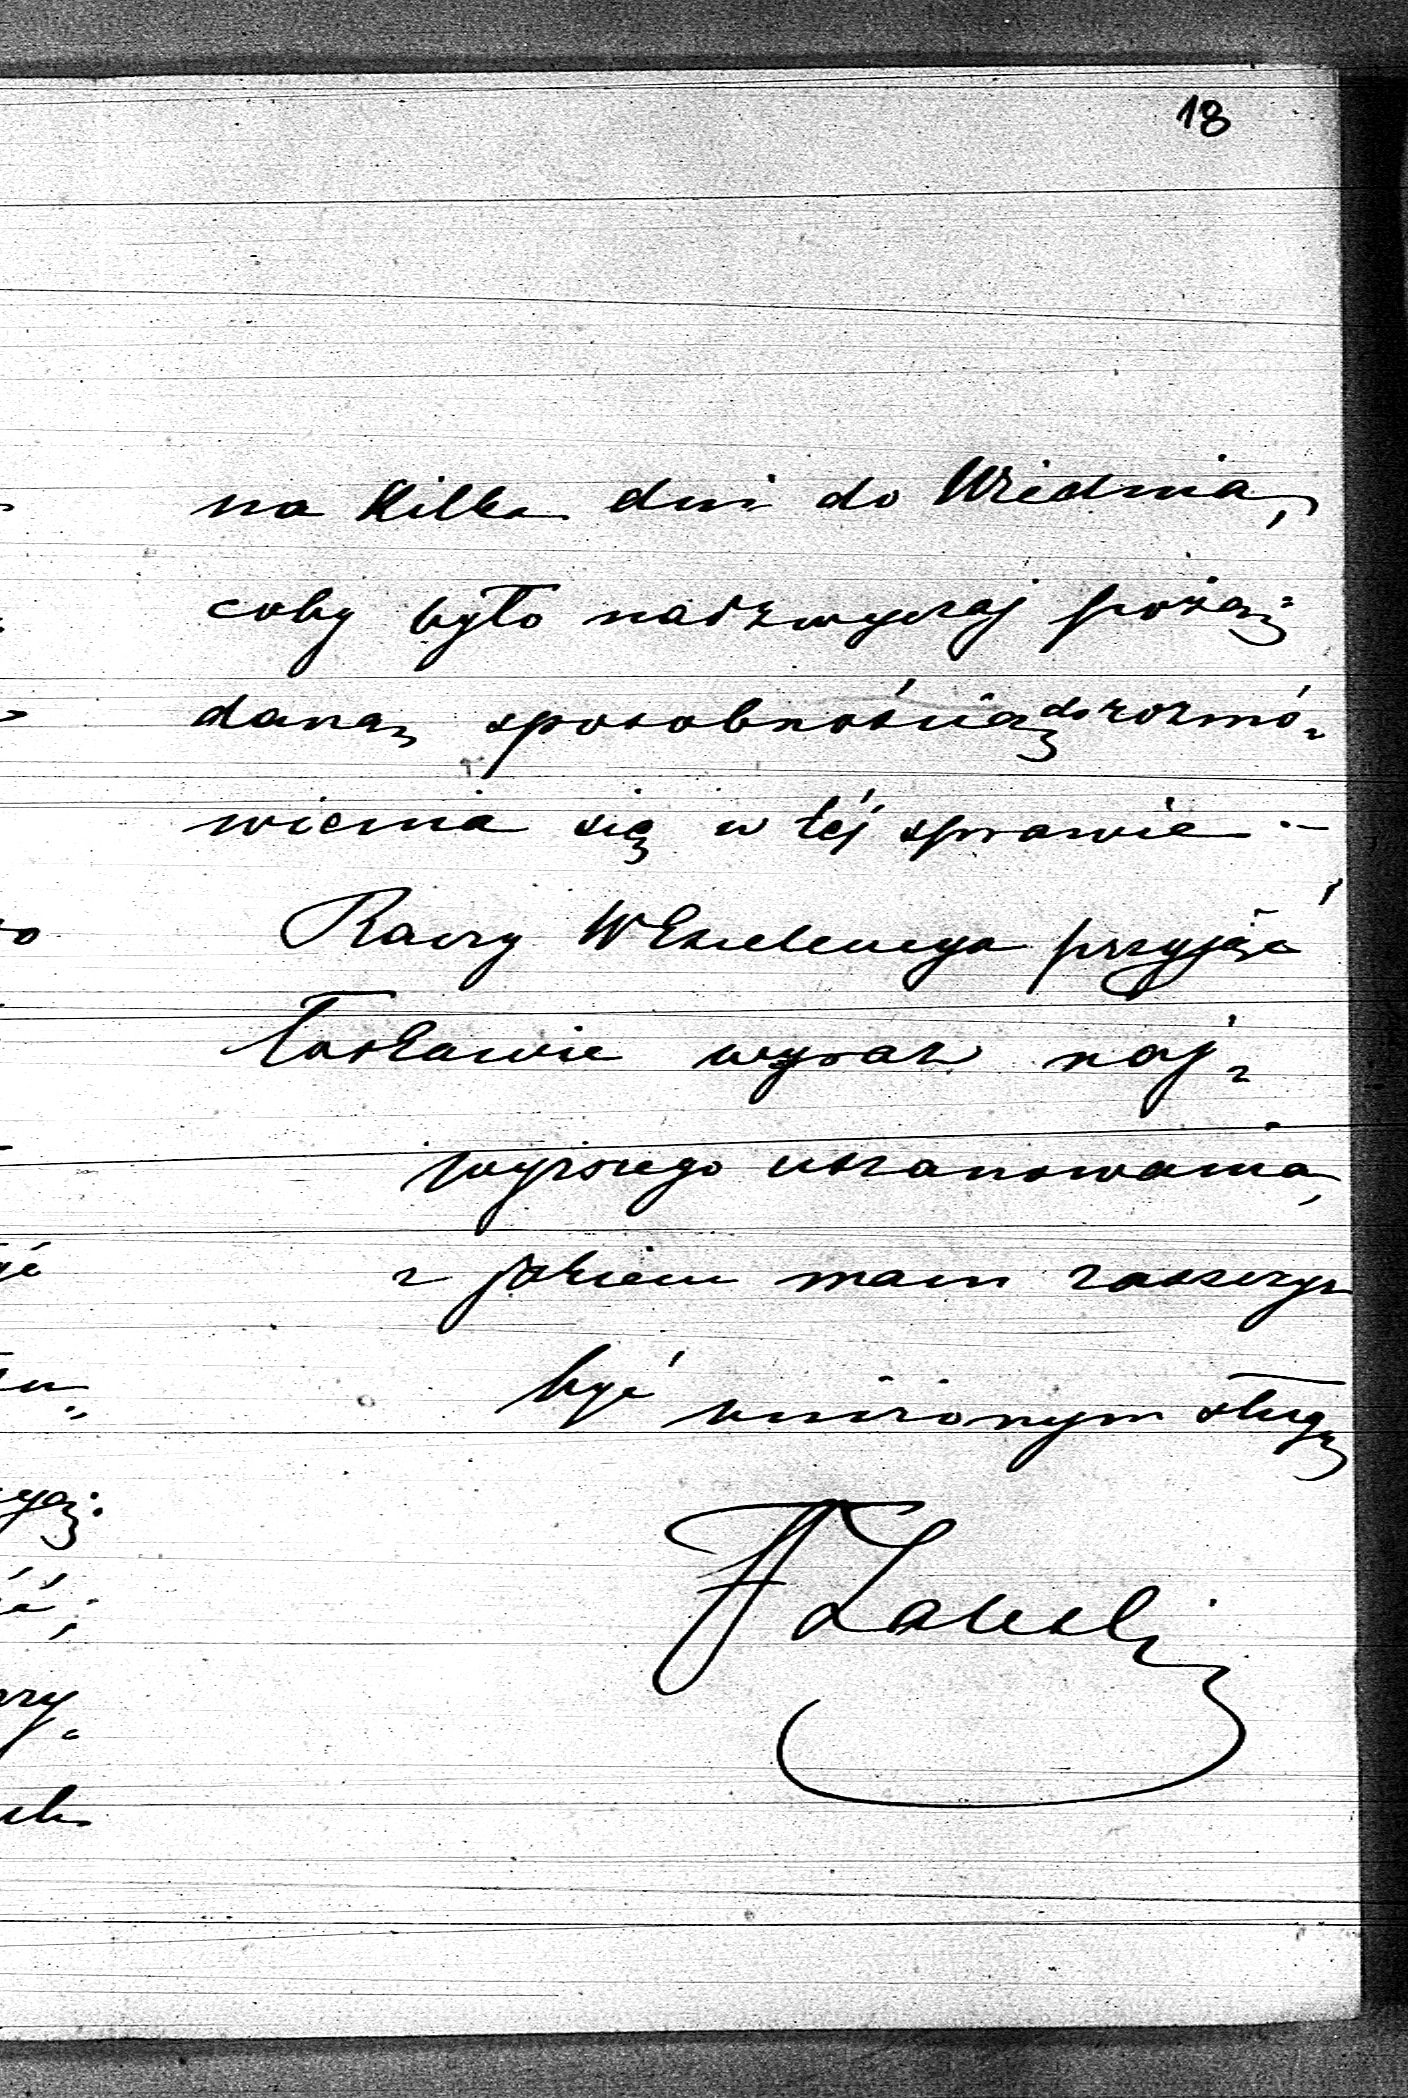 18
na kilka dni do Wiednia,
coby było nadzwyczaj pożą-
daną sposobnością do rozmó-
wienia się w téj sprawie.-
Raczy WEkscelencya przyjąć
łaskawie wyraz naj-
wyższego uszanowania,
z jakiem mam zaszczyt
być uniżonym sługą